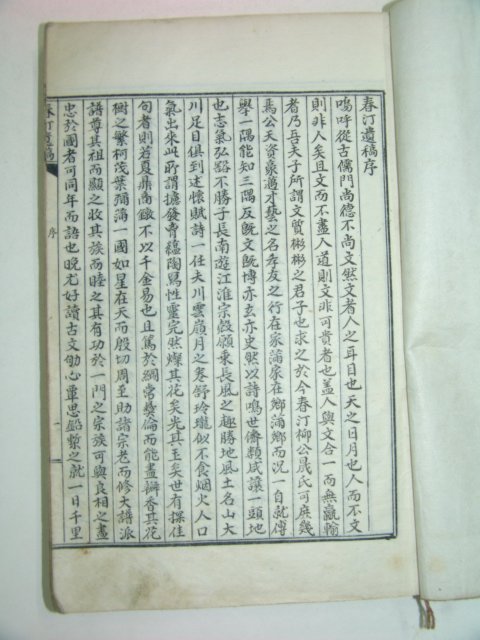 春汀遺稿序
嗚呼從古儒門尚德不尚文然文者人之耳目也天之日月也人而不文
則非人矣且文而不盡人道則文非可貴者也蓋人與文合一而無贏輸
者乃吾夫子所謂文質彬彬之君子也求之於今春汀柳公晟氏可庶幾
焉公天資豪邁才藝之名孝友之行在家滿家在鄉滿鄉而況一自就傅
擧一隅能知三隅反旣文旣博亦玄亦史然以詩鳴世儕類咸讓一頭地
也志氣弘豁不勝子長南遊江淮宗慤願乘長風之趣勝地風土名山大
川足目俱到述懷賦詩一任夫川雲廣月之卷舒玲瓏似不食烟火人口
氣出來此所謂擔發賣蘊陶寫性靈完然燦其花矣光其玉矣世有採佳
句者則若夏鼎商鐓不以千金易也且篤於綱常彝倫而能盡孀香其花
樹之繁柯茂葉彌蒲一國如星在天而殷切周至助諸宗老而修大譜派
譜尊其祖而顯之收其族而睦之其有功於一門之宗族可與良相之盡
忠於國者可同年而語也晚尤好讀古文劬心覃思鉛槧之就一日千里
春汀遺稿
序